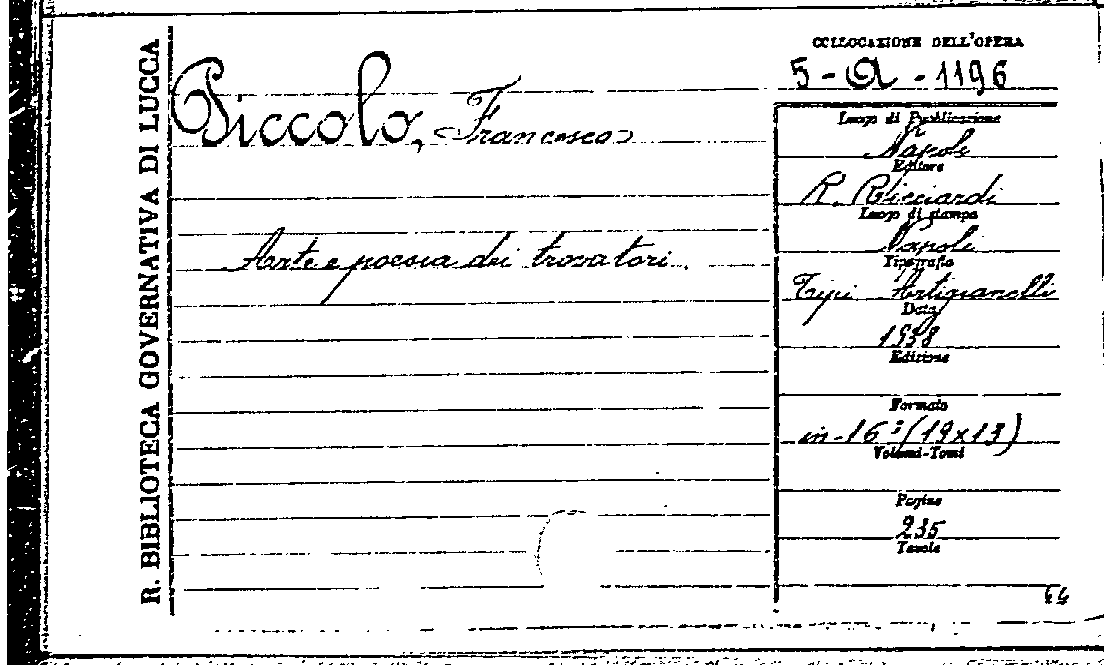 R. BIBLIOTECA GOVERNATIVA DI LUCCA
Piccolo, Francesco
Arte e poesia dei trovatori.
COLLOCAZIONE DELL'OPERA
5-A-1196
Luogo di Pubblicazione
Napoli
Editore
R. Ricciardi
Luogo di stampa
Napoli
Tipografia
Tipi Artigianelli
Data
1938
Edizione
Formato
in-16º (19x13)
Volumi-Tomi
Pagine
235
Tavole